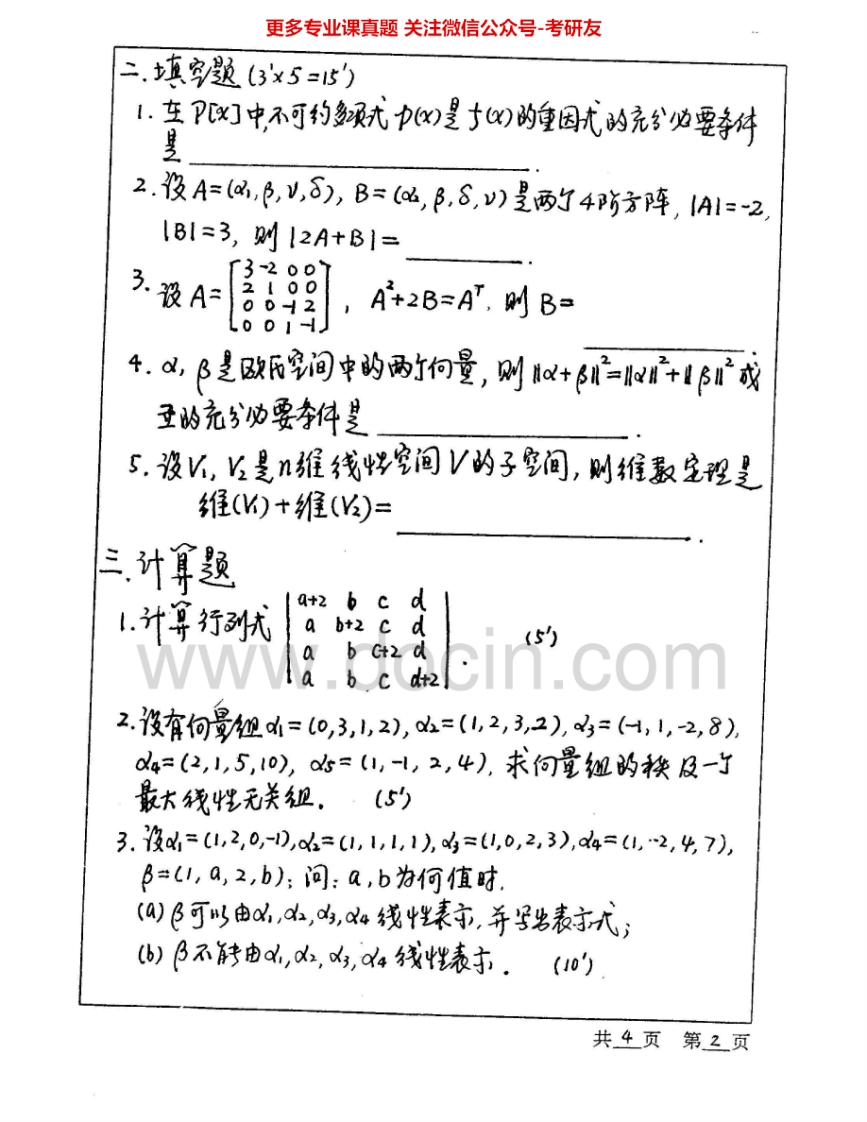 更多专业课真题 关注微信公众号-考研友
二.填空题(3'×5=15')
1.在P[x]中,不可约多项式p(x)是f(x)的重因式的充分必要条件
是____________.
2.设A=(α₁,β,ν,δ), B=(α₂,β,δ,ν)是两个4阶方阵, |A|=-2,
|B|=3, 则|2A+B|=____________.
3.设A=[3 -2 0 0; 2 1 0 0; 0 0 -1 2; 0 0 1 -1], A²+2B=Aᵀ, 则B=____________.
4.α,β是欧氏空间中的两个向量,则‖α+β‖²=‖α‖²+‖β‖²成
立的充分必要条件是____________.
5.设V₁,V₂是n维线性空间V的子空间,则维数定理是
维(V₁)+维(V₂)=____________.
三.计算题
1.计算行列式 |a+2 b c d; a b+2 c d; a b c+2 d; a b c d+2|. (5')
www.docin.com
2.设有向量组α₁=(0,3,1,2),α₂=(1,2,3,2),α₃=(-1,1,-2,8),
α₄=(2,1,5,10), α₅=(1,-1,2,4), 求向量组的秩及一个
最大线性无关组. (5')
3.设α₁=(1,2,0,-1),α₂=(1,1,1,1),α₃=(1,0,2,3),α₄=(1,-2,4,7),
β=(1,a,2,b);问:a,b为何值时.
(a)β可以由α₁,α₂,α₃,α₄线性表示,并写出表示式;
(b)β不能由α₁,α₂,α₃,α₄线性表示. (10')
共 4 页 第 2 页